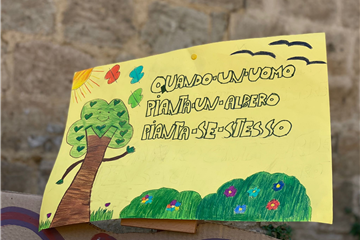 QUANDO-UN-UOMO
PIANTA-UN-ALBERO
PIANTA-SE-STESSO